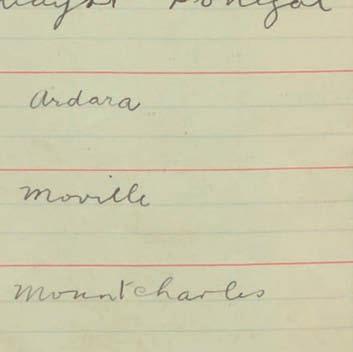 Donegal
Ardara
Moville
Mountcharles